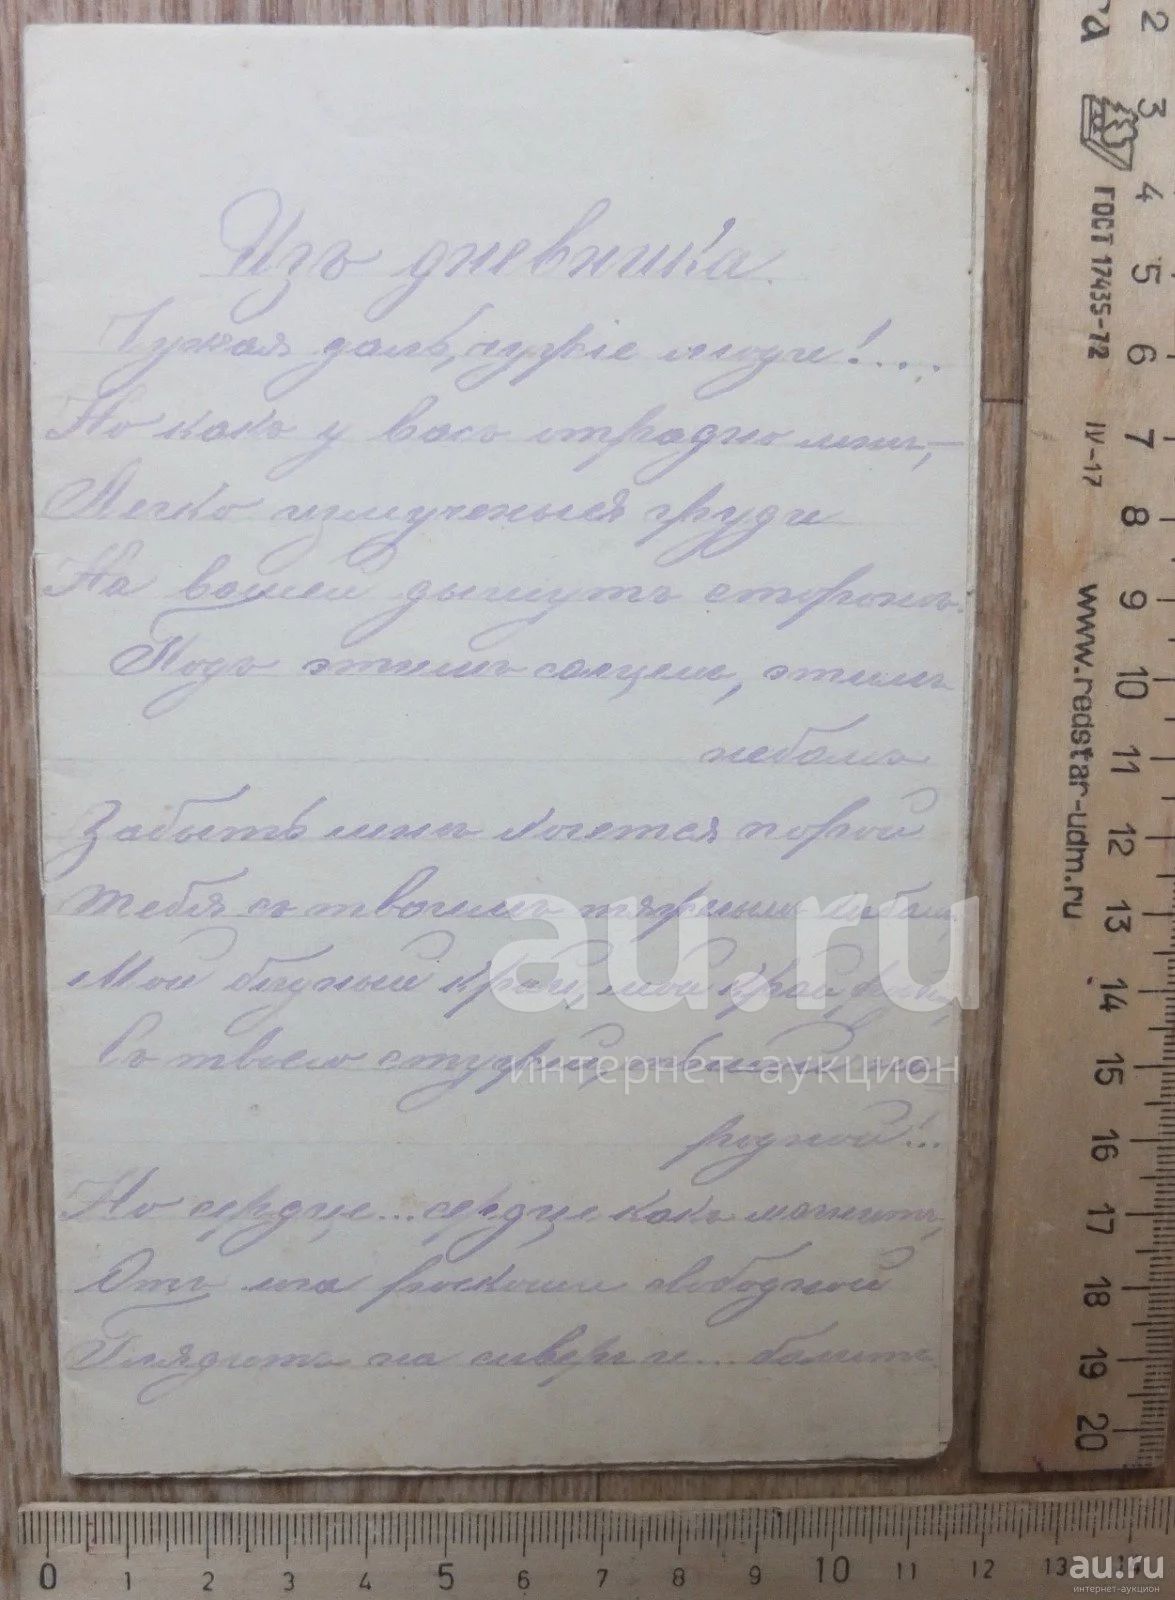 Изъ дневника.
Чужая даль, чужіе люди!....
Но какъ у васъ отрадно мнѣ,—
Легко измученыя груди
На вашей дышутъ сторонѣ.
Подъ этимъ солцемъ, этимъ
небомъ
Забыть мнѣ хочется порой
Тебя съ твоимъ тяжелымъ хлѣбомъ,
Мой бѣдный край, мой край
Съ твоею стужей,
родной!..
Но сердце... сердце какъ магнитъ,
Отъ юга роскоши свободной
Глядитъ на сѣверъ и... болитъ.
au.ru
интернет-аукцион
ГОСТ 17435-72 IV-17
www.redstar-udm.ru
2 3 4 5 6 7 8 9 10 11 12 13 14 15 16 17 18 19 20
0 1 2 3 4 5 6 7 8 9 10 11 12 13 14
au.ru
интернет-аукцион